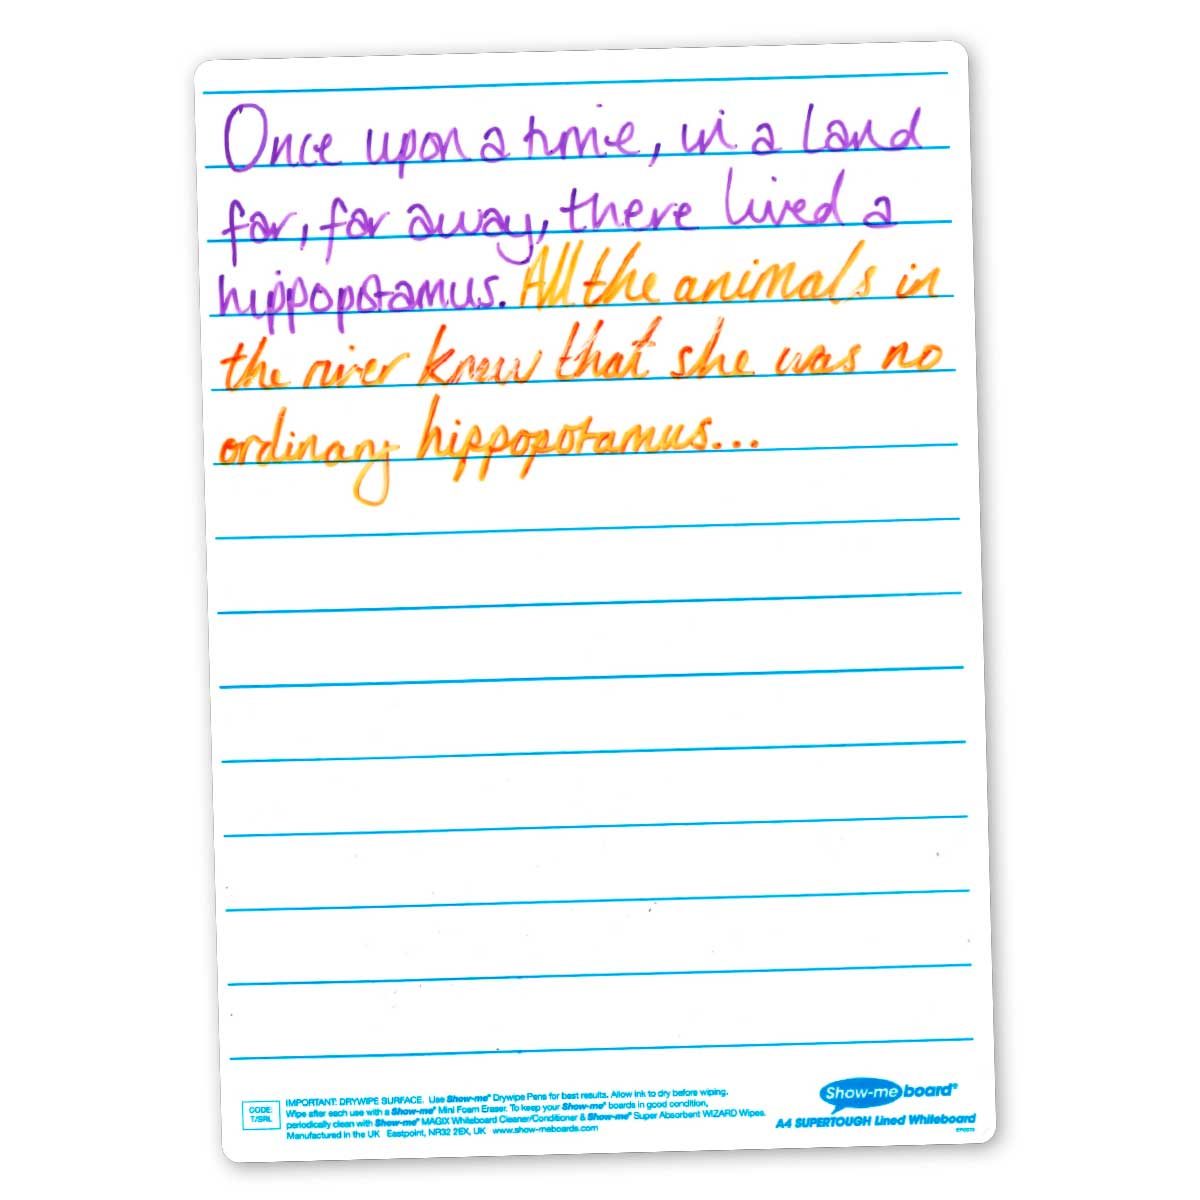 Once upon a time, in a land
far, far away, there lived a
hippopotamus. All the animals in
the river knew that she was no
ordinary hippopotamus...
CODE:
T/SRL
IMPORTANT: DRYWIPE SURFACE. Use Show-me® Drywipe Pens for best results. Allow ink to dry before wiping.
Wipe after each use with a Show-me® Mini Foam Eraser. To keep your Show-me® boards in good condition,
periodically clean with Show-me® MAGIX Whiteboard Cleaner/Conditioner & Show-me® Super Absorbent WIZARD Wipes.
Manufactured in the UK Eastpoint, NR32 2EX, UK www.show-meboards.com
Show-me board®
A4 SUPERTOUGH Lined Whiteboard